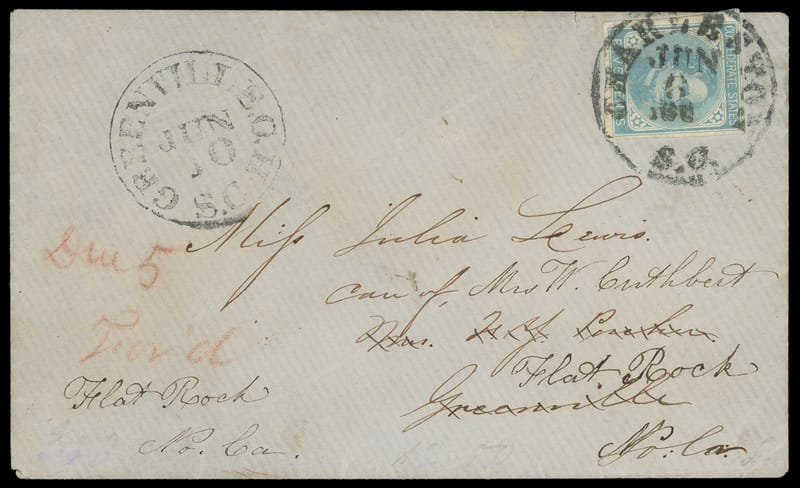 GREENVILLE C.H.
JUN
10
S.C.
CHARLESTON
JUN
6
S.C.
CONFEDERATE STATES
FIVE CENTS
Miss Julia Lewis.
care of, Mrs W. Cuthbert
Mrs.
Flat Rock
Greenville
No. Ca.
Due 5
For'd
Flat Rock
No. Ca.